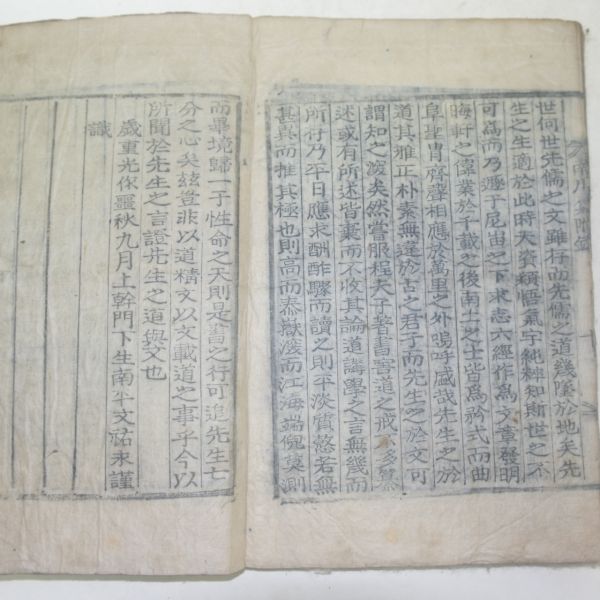 世何世先儒之文雖存而先儒之道幾墜於地矣先
生之生適於此時天資穎悟氣宇純粹知斯世之不
可爲而乃遯于尼峀之下束志六經作爲文章發明
晦軒之偉業於千載之後南土之士皆爲矜式而曲
阜聖冑齊聲相應於萬里之外嗚呼盛哉先生之於
道其雅正朴素無遜於古之君子而先生之於文可
謂知之深矣然嘗服程夫子著書害道之戒不多纂
述或有所述皆棄而不收其論道講學之言無幾而
所存乃平日應求酬酢驟而讀之則平淡質慤若無
甚異而推其極也則高而泰嶽深而江海端倪莫測
而畢境歸一子性命之天則是書之行可追先生七
分之心矣玆豈非以道精文以文載道之事乎今以
所聞於先生之言證先生之道與文也
歲重光作噩秋九月上幹門下生南平文祐永謹
識